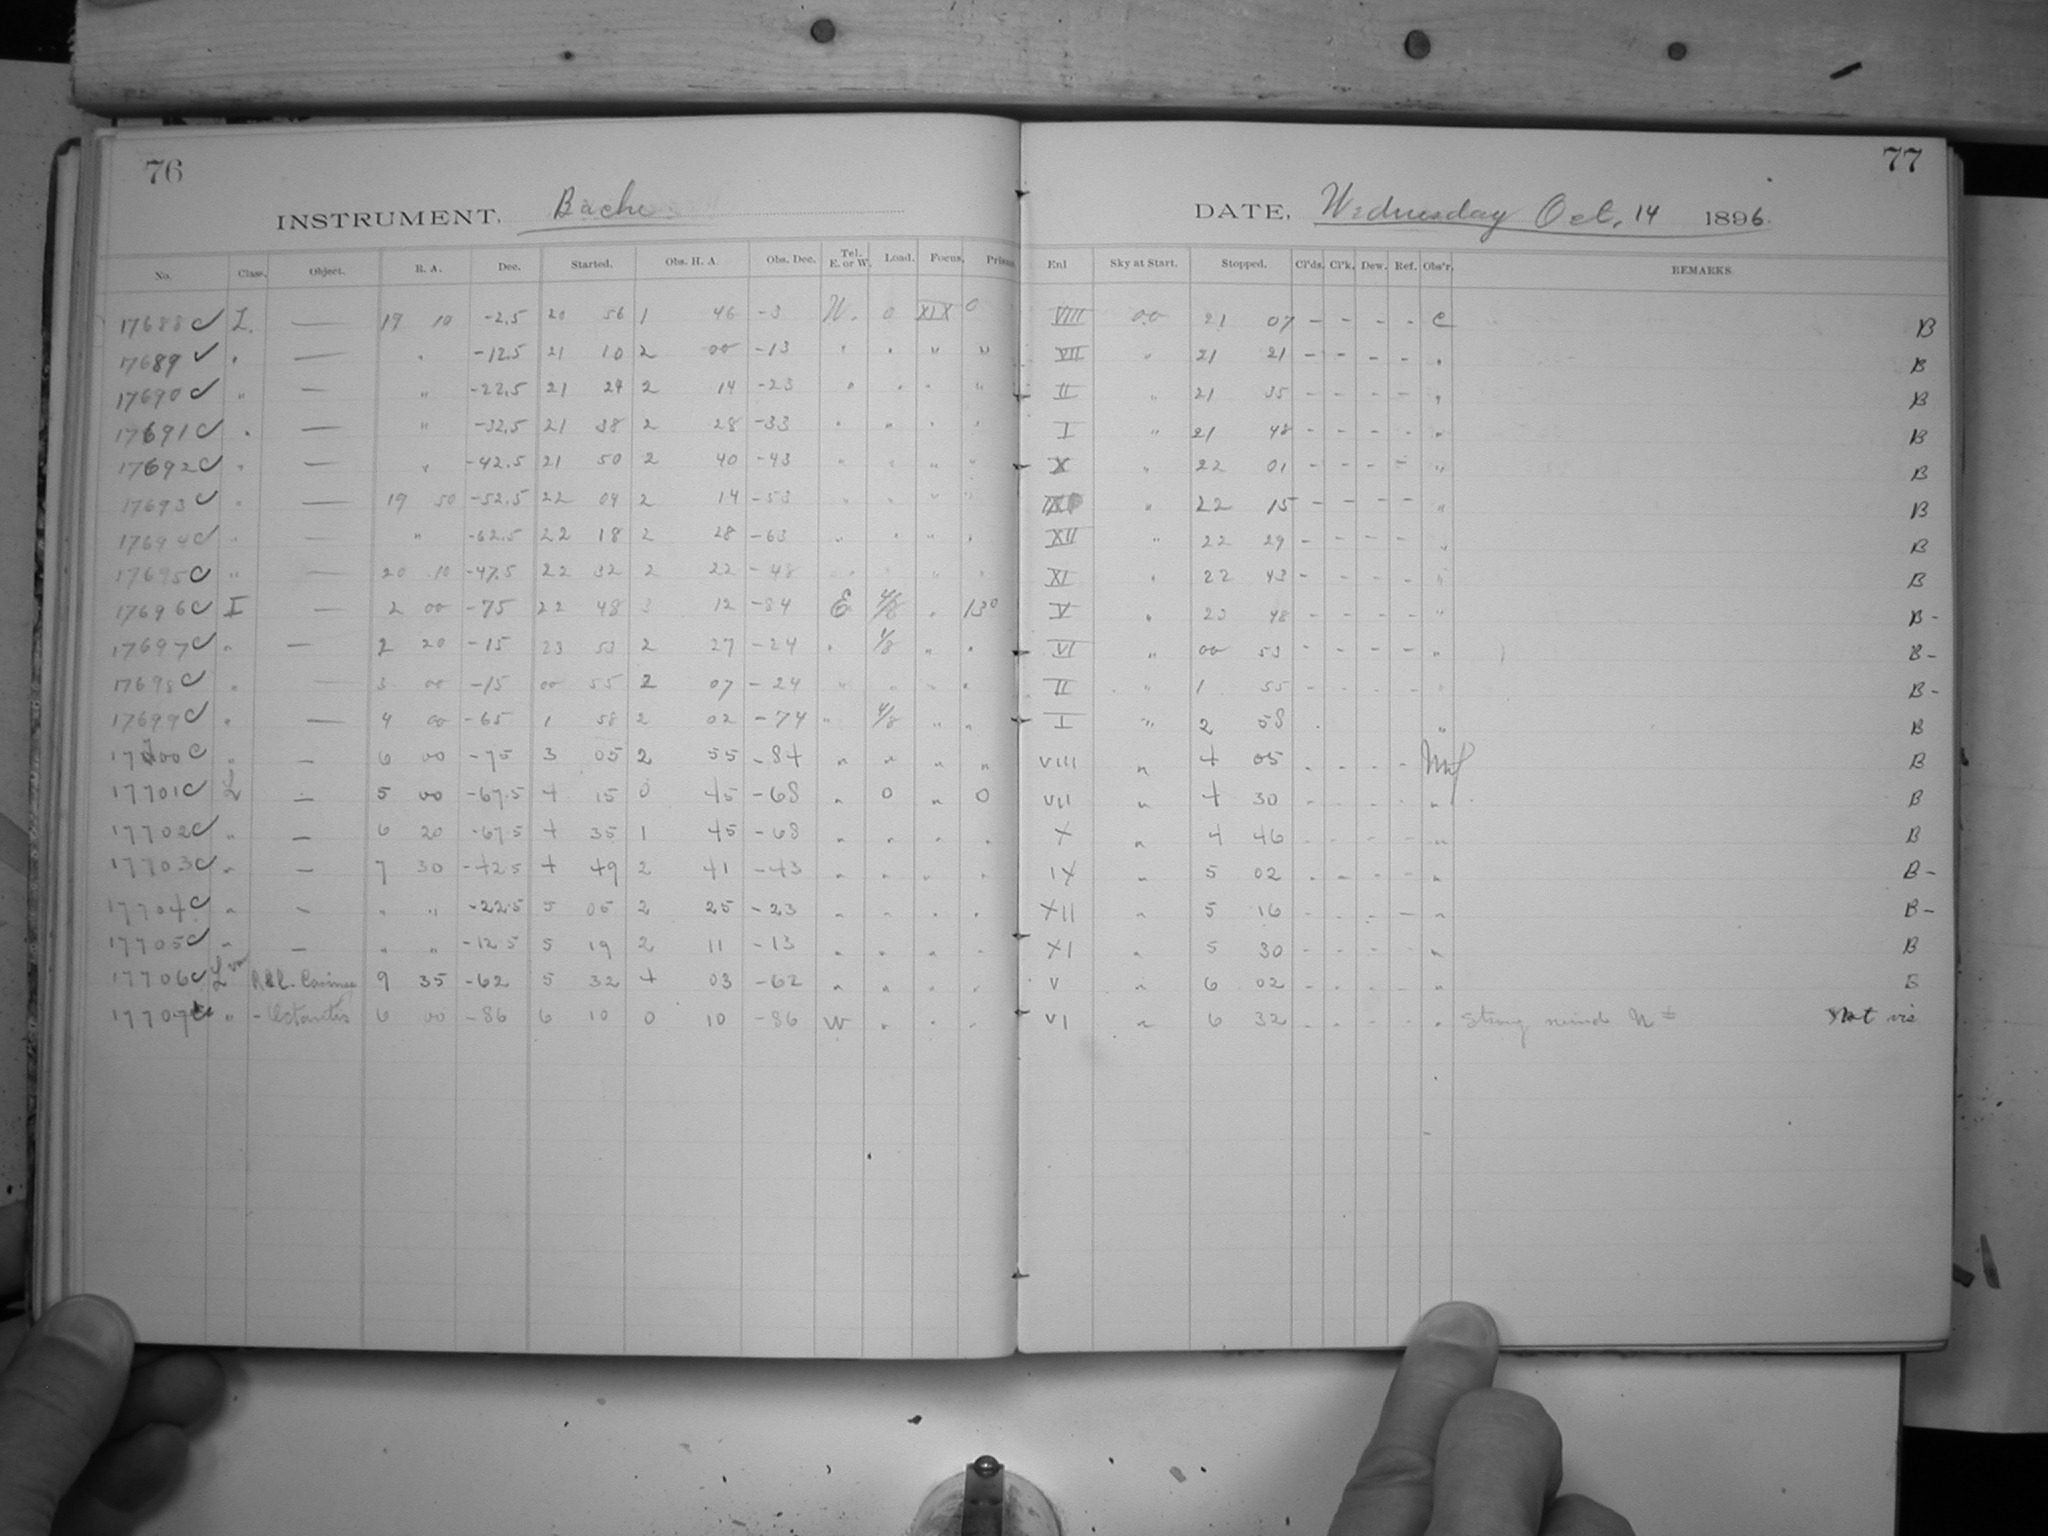 76
77
INSTRUMENT. Bache
DATE, Wednesday Oct. 14 1896.
No. Class. Object. R. A. Dec. Started. Obs. H. A. Obs. Dec. Tel. E. or W. Load. Focus. Prism Enl Sky at Start. Stopped. Cl'ds. Cl'k. Dew. Ref. Obs'r. REMARKS.
17688 C L. — 19 10 -2.5 20 56 1 46 -3 W. 0 XIX 0 VIII 00 21 07 - - - - C B
17689 " — " -12.5 21 10 2 00 -13 " " " " VII " 21 21 - - - - " B
17690 C " — " -22.5 21 24 2 14 -23 " " " " II " 21 35 - - - - " B
17691 C " — " -32.5 21 38 2 28 -33 " " " " I " 21 48 - - - - " B
17692 C " — " -42.5 21 50 2 40 -43 " " " " X " 22 01 - - - - " B
17693 C " — 19 50 -52.5 22 04 2 14 -53 " " " " " 22 15 - - - - " B
17694 C " — " -62.5 22 18 2 28 -63 " " " " XII " 22 29 - - - - " B
17695 C " — 20 10 -47.5 22 32 2 22 -48 " " " " XI " 22 43 - " B
17696 C I — 2 00 -75 22 48 3 12 -84 E 4/8 " 13° V " 23 48 - - - - " B -
17697 C " — 2 20 -15 23 53 2 27 -24 " 4/8 " " VI " 00 53 - - - - " B -
17698 C " — 3 00 -15 00 55 2 07 -24 " " " " II " 1 55 - - - - " B -
17699 C " — 4 00 -65 1 58 2 02 -74 " 4/8 " " I " 2 58 " B
17700 C " — 6 00 -75 3 05 2 55 -84 " " " " VIII " 4 05 - - - - B
17701 C L — 5 00 -67.5 4 15 0 45 -68 " 0 " 0 VII " 4 30 - - - - " B
17702 C " — 6 20 -67.5 4 35 1 45 -68 " " " " X " 4 46 - - - - " B
17703 C " — 7 30 -42.5 4 49 2 41 -43 " " " " IX " 5 02 - - - - " B -
17704 C " — " " -22.5 5 05 2 25 -23 " " " " XII " 5 16 - - - - " B -
17705 C " — " " -12.5 5 19 2 11 -13 " " " " XI " 5 30 - - - - " B
17706 C L var R & l. Carinae 9 35 -62 5 32 4 03 -62 " " " " V " 6 02 - - - - " B
17707 " - Octantis 6 00 -86 6 10 0 10 -86 W " " " VI " 6 32 - - - - " Strong wind Not vis